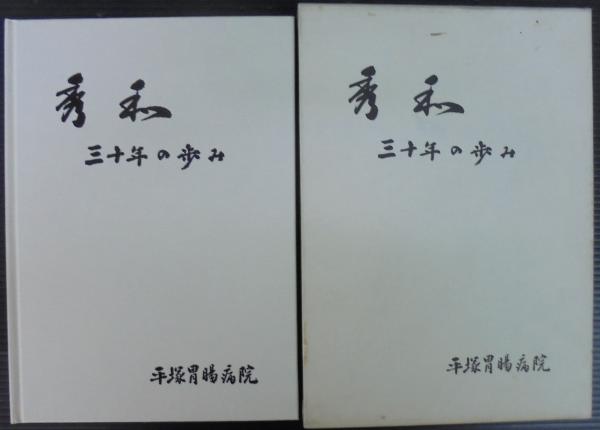 秀和
三十年の歩み
平塚胃腸病院
秀和
三十年の歩み
平塚胃腸病院